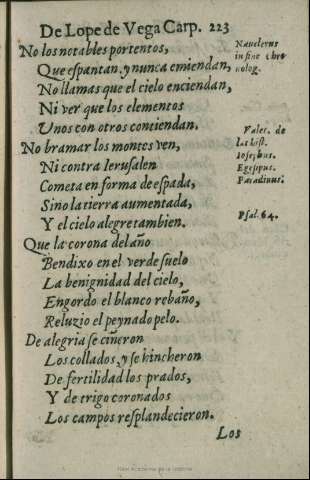 De Lope de Vega Carp. 223
No los notables portentos,
Que eſpantan, y nunca emiendan,
No llamas que el cielo enciendan,
Ni ver que los elementos
Unos con otros contiendan.
No bramar los montes ven,
Ni contra Ieruſalen
Cometa en forma de eſpada,
Sino la tierra aumentada,
Y el cielo alegre tambien.
Que la corona del año
Bendixo en el verde ſuelo
La benignidad del cielo,
Engordo el blanco rebaño,
Reluzio el peynado pelo.
De alegria ſe ciñeron
Los collados, y ſe hincheron
De fertilidad los prados,
Y de trigo coronados
Los campos reſplandecieron.
Los
Nauclerus
in fine chro
nolog.
Valer. de
las hiſt.
Ioſephus.
Egeſipus.
Paradinus.
Pſal. 64.